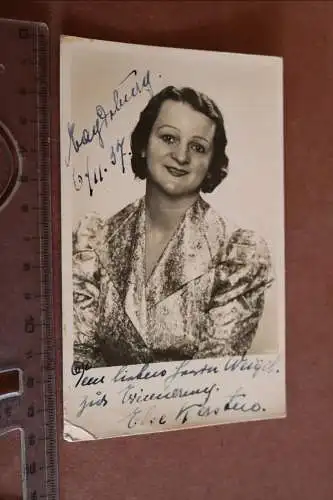 Magdeburg.
6/11.37.
Dem lieben Herrn Weigel.
zur Erinnerung.
Else Kersten.